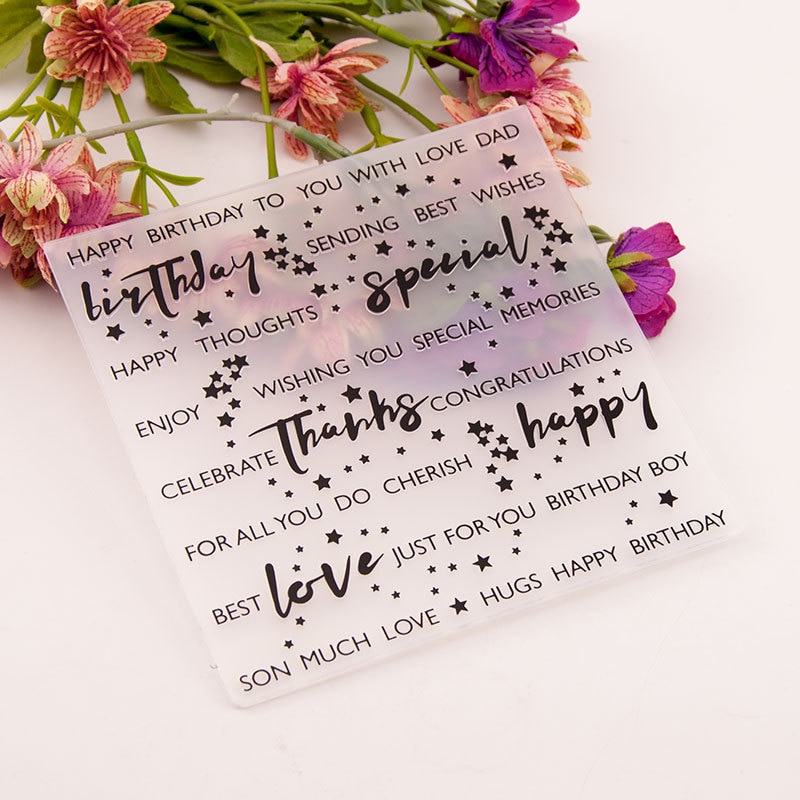 HAPPY BIRTHDAY TO YOU WITH LOVE DAD
birthday SENDING BEST WISHES
special
HAPPY THOUGHTS
ENJOY WISHING YOU SPECIAL MEMORIES
CELEBRATE Thanks CONGRATULATIONS
happy
FOR ALL YOU DO CHERISH
BEST love JUST FOR YOU BIRTHDAY BOY
SON MUCH LOVE HUGS HAPPY BIRTHDAY